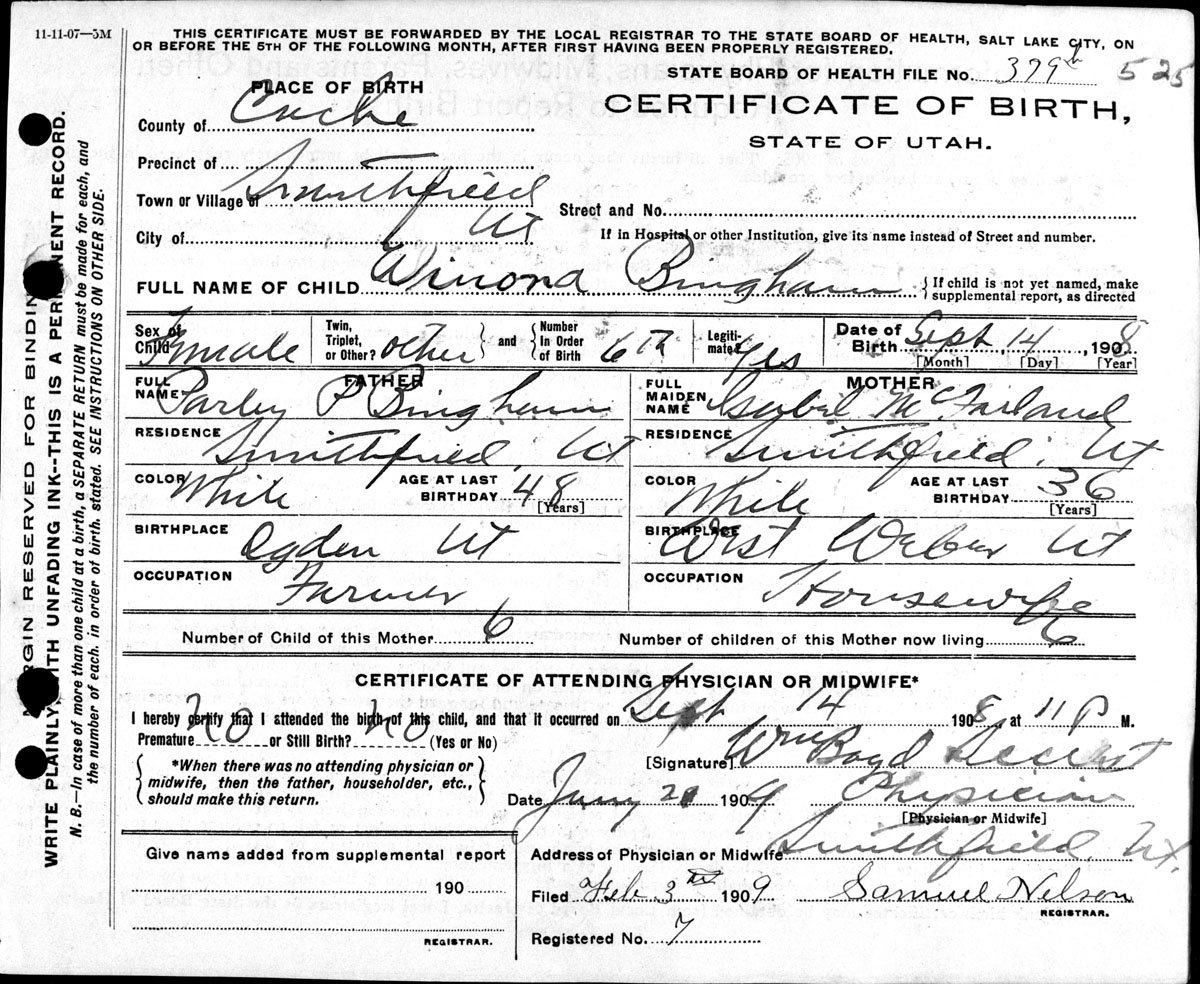 11-11-07—5M
THIS CERTIFICATE MUST BE FORWARDED BY THE LOCAL REGISTRAR TO THE STATE BOARD OF HEALTH, SALT LAKE CITY, ON
OR BEFORE THE 5TH OF THE FOLLOWING MONTH, AFTER FIRST HAVING BEEN PROPERLY REGISTERED.
STATE BOARD OF HEALTH FILE No. 379 525
PLACE OF BIRTH
CERTIFICATE OF BIRTH,
STATE OF UTAH.
County of Cache
Precinct of
Town or Village of Smithfield
Street and No.
City of Ut
If in Hospital or other Institution, give its name instead of Street and number.
FULL NAME OF CHILD Winona Bingham { If child is not yet named, make
supplemental report, as directed
Sex of Child Female Twin, Triplet, or Other? other } and { Number In Order of Birth 6th Legitimate? Yes Date of Birth Sept 14, 1908
[Month] [Day] [Year]
FATHER
FULL NAME Parley P Bingham
RESIDENCE Smithfield, Ut
COLOR White AGE AT LAST BIRTHDAY 48
[Years]
BIRTHPLACE Ogden Ut
OCCUPATION Farmer
MOTHER
FULL MAIDEN NAME Isabel McFarland
RESIDENCE Smithfield, Ut
COLOR White AGE AT LAST BIRTHDAY 36
[Years]
BIRTHPLACE West Weber Ut
OCCUPATION Housewife
Number of Child of this Mother 6 Number of children of this Mother now living 6
CERTIFICATE OF ATTENDING PHYSICIAN OR MIDWIFE*
I hereby certify that I attended the birth of this child, and that it occurred on Sept 14 1908, at 11 P M.
Premature no or Still Birth? no (Yes or No)
[Signature] Wm Boyd
{ *When there was no attending physician or
midwife, then the father, householder, etc.,
should make this return. }
Date 1909 Physician
[Physician or Midwife]
Give name added from supplemental report
190
REGISTRAR.
Address of Physician or Midwife Smithfield, Ut.
Filed Feb 3rd 1909 Samuel Nelson
REGISTRAR.
Registered No. 7
MARGIN RESERVED FOR BINDING
WRITE PLAINLY, WITH UNFADING INK--THIS IS A PERMANENT RECORD.
N. B.—In case of more than one child at a birth, a SEPARATE RETURN must be made for each, and
the number of each, in order of birth, stated. SEE INSTRUCTIONS ON OTHER SIDE.